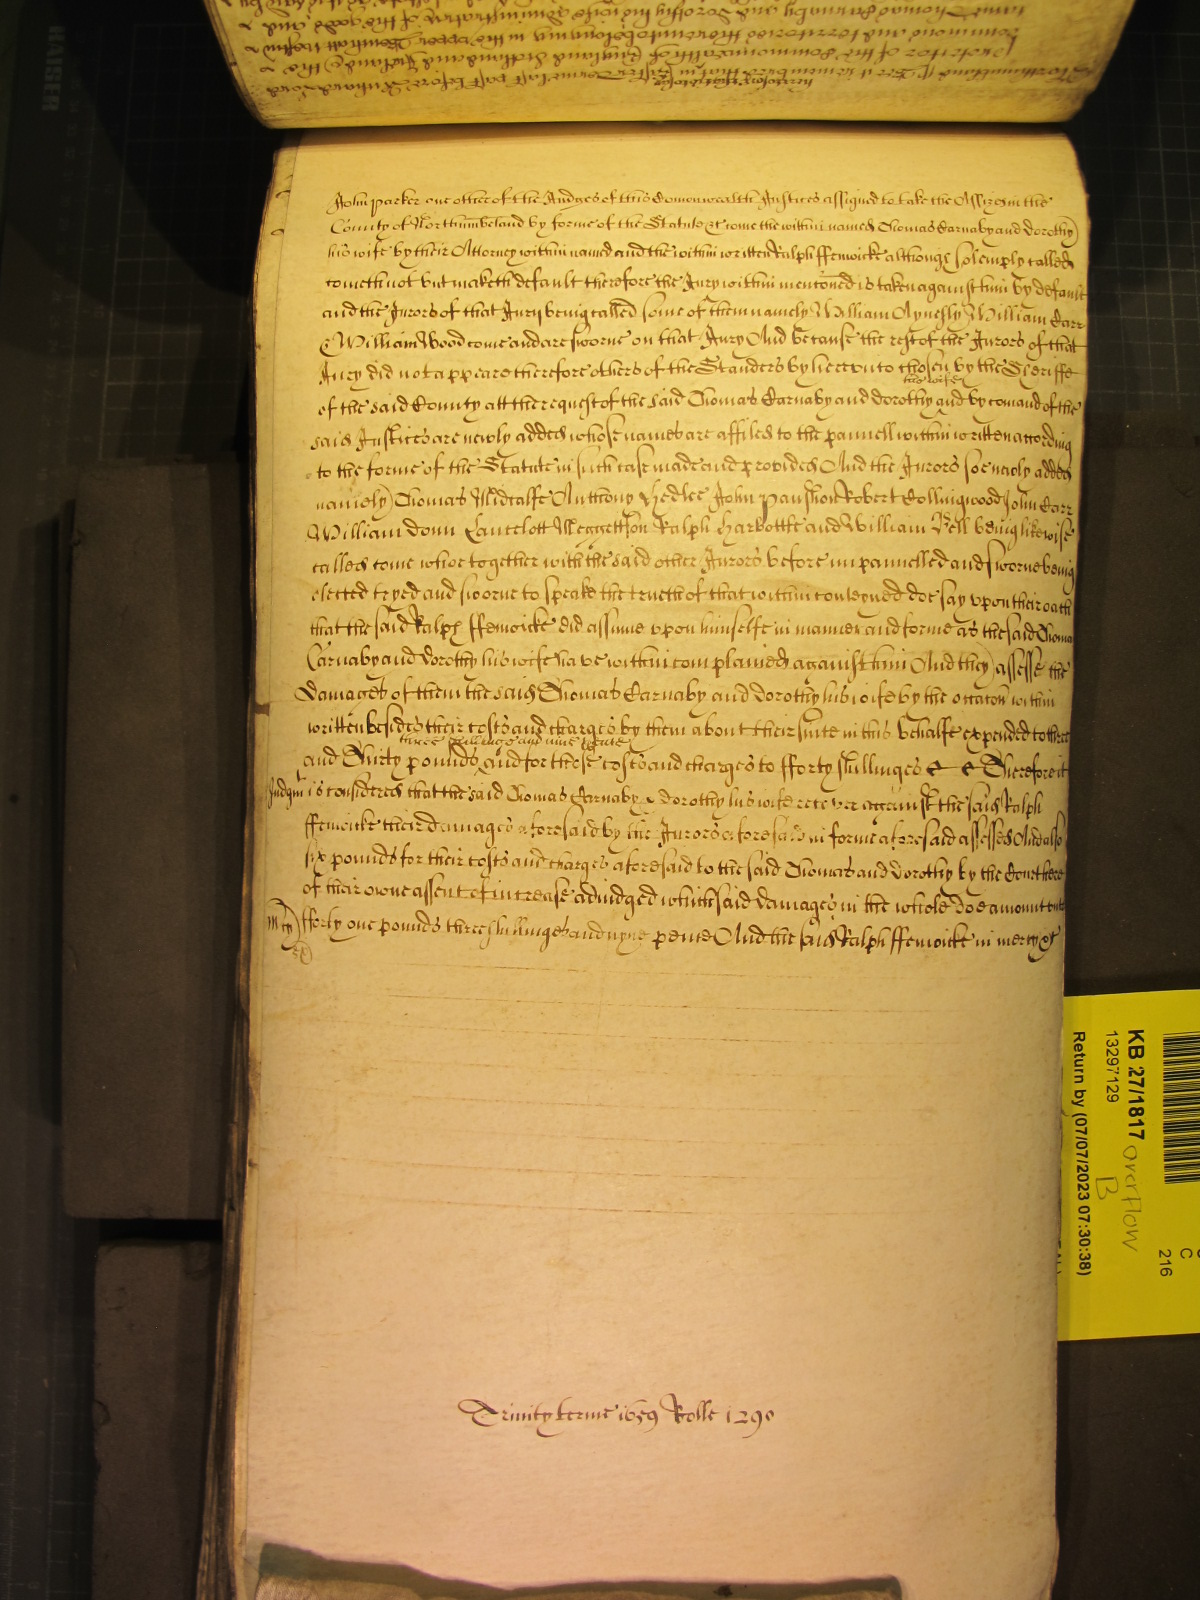 John Parker one other of the Judges of this Comonwealth Justices assigned to take the Assizes in the
County of Northumberland by forme of the Statute &c come the within named Thomas Carnaby and Dorothy
his wife by their Attorney within named and the within written Ralph ffenwicke althouge solemply called
cometh not but maketh default therefore the Jury within mentoned is taken against him by default
and the Jurors of that Jury being called some of them namely William Aynesly William Carr
& William Wood come and are sworne on that Jury And because the rest of the Jurors of that
Jury did not appeare therefore others of the Standers by hereunto chosen by the Sheriffe
of the said County att the request of the said Thomas Carnaby and Dorothy his wife and by comand of the
said Justices are newly added whose names are affiled to the pannell within written according
to the forme of the Statute in such case made and provided And the Jurors soe newly added
namely Thomas Midcalfe Anthony Hedlee John Robert Collingwood John Carr
William Donn Lancelott Meggettson Ralph Harbottle and William Bell being likewise
called come whoe together with the said other Jurors before impannelled and sworne being
elected tryed and sworne to speake the trueth of that within conteyned doe say upon their oath
that the said Ralph ffenwicke did assume upon himselfe in manner and forme as the said Thomas
Carnaby and Dorothy his wife have within complained against him And they assesse the
damages of them the said Thomas Carnaby and Dorothy his wife by the occacon within
written besides their costs and charges by them about their suite in this behalfe expended to three
and Thirty pounds three shillings and nine pence and for those costs and charges to fforty shillinges & & Therefore it
Judgmt is considered that the said Thomas Carnaby & Dorothy his wife recover against the said Ralph
ffenwicke their damages aforesaid by the Jurors aforesaid in forme aforesaid assessed And also
six pounds for their costs and charges aforesaid to the said Thomas and Dorothy by the Court here
of their owne assent of increase adiudged which said damages in the whole doe amount unto
mcy fforty one pounds three shillinges and nyne pence And the said Ralph ffenwicke in mercy &c
Trinity terme 1659 Rolle 1290
KB 27/1817
13297129
Return by (07/07/2023 07:30:38)
overflow
B
C
216